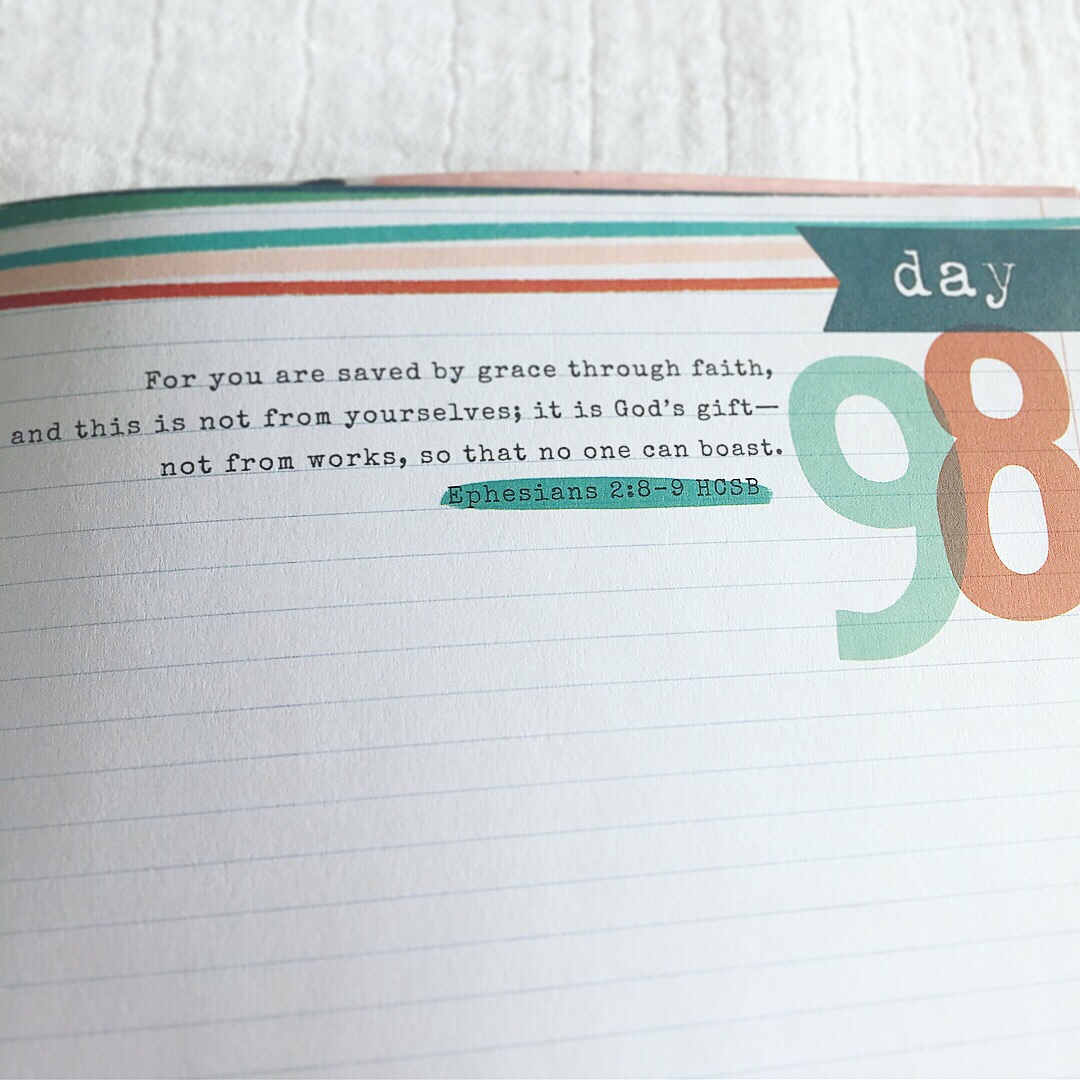 day
98
For you are saved by grace through faith,
and this is not from yourselves; it is God's gift—
not from works, so that no one can boast.
Ephesians 2:8-9 HCSB